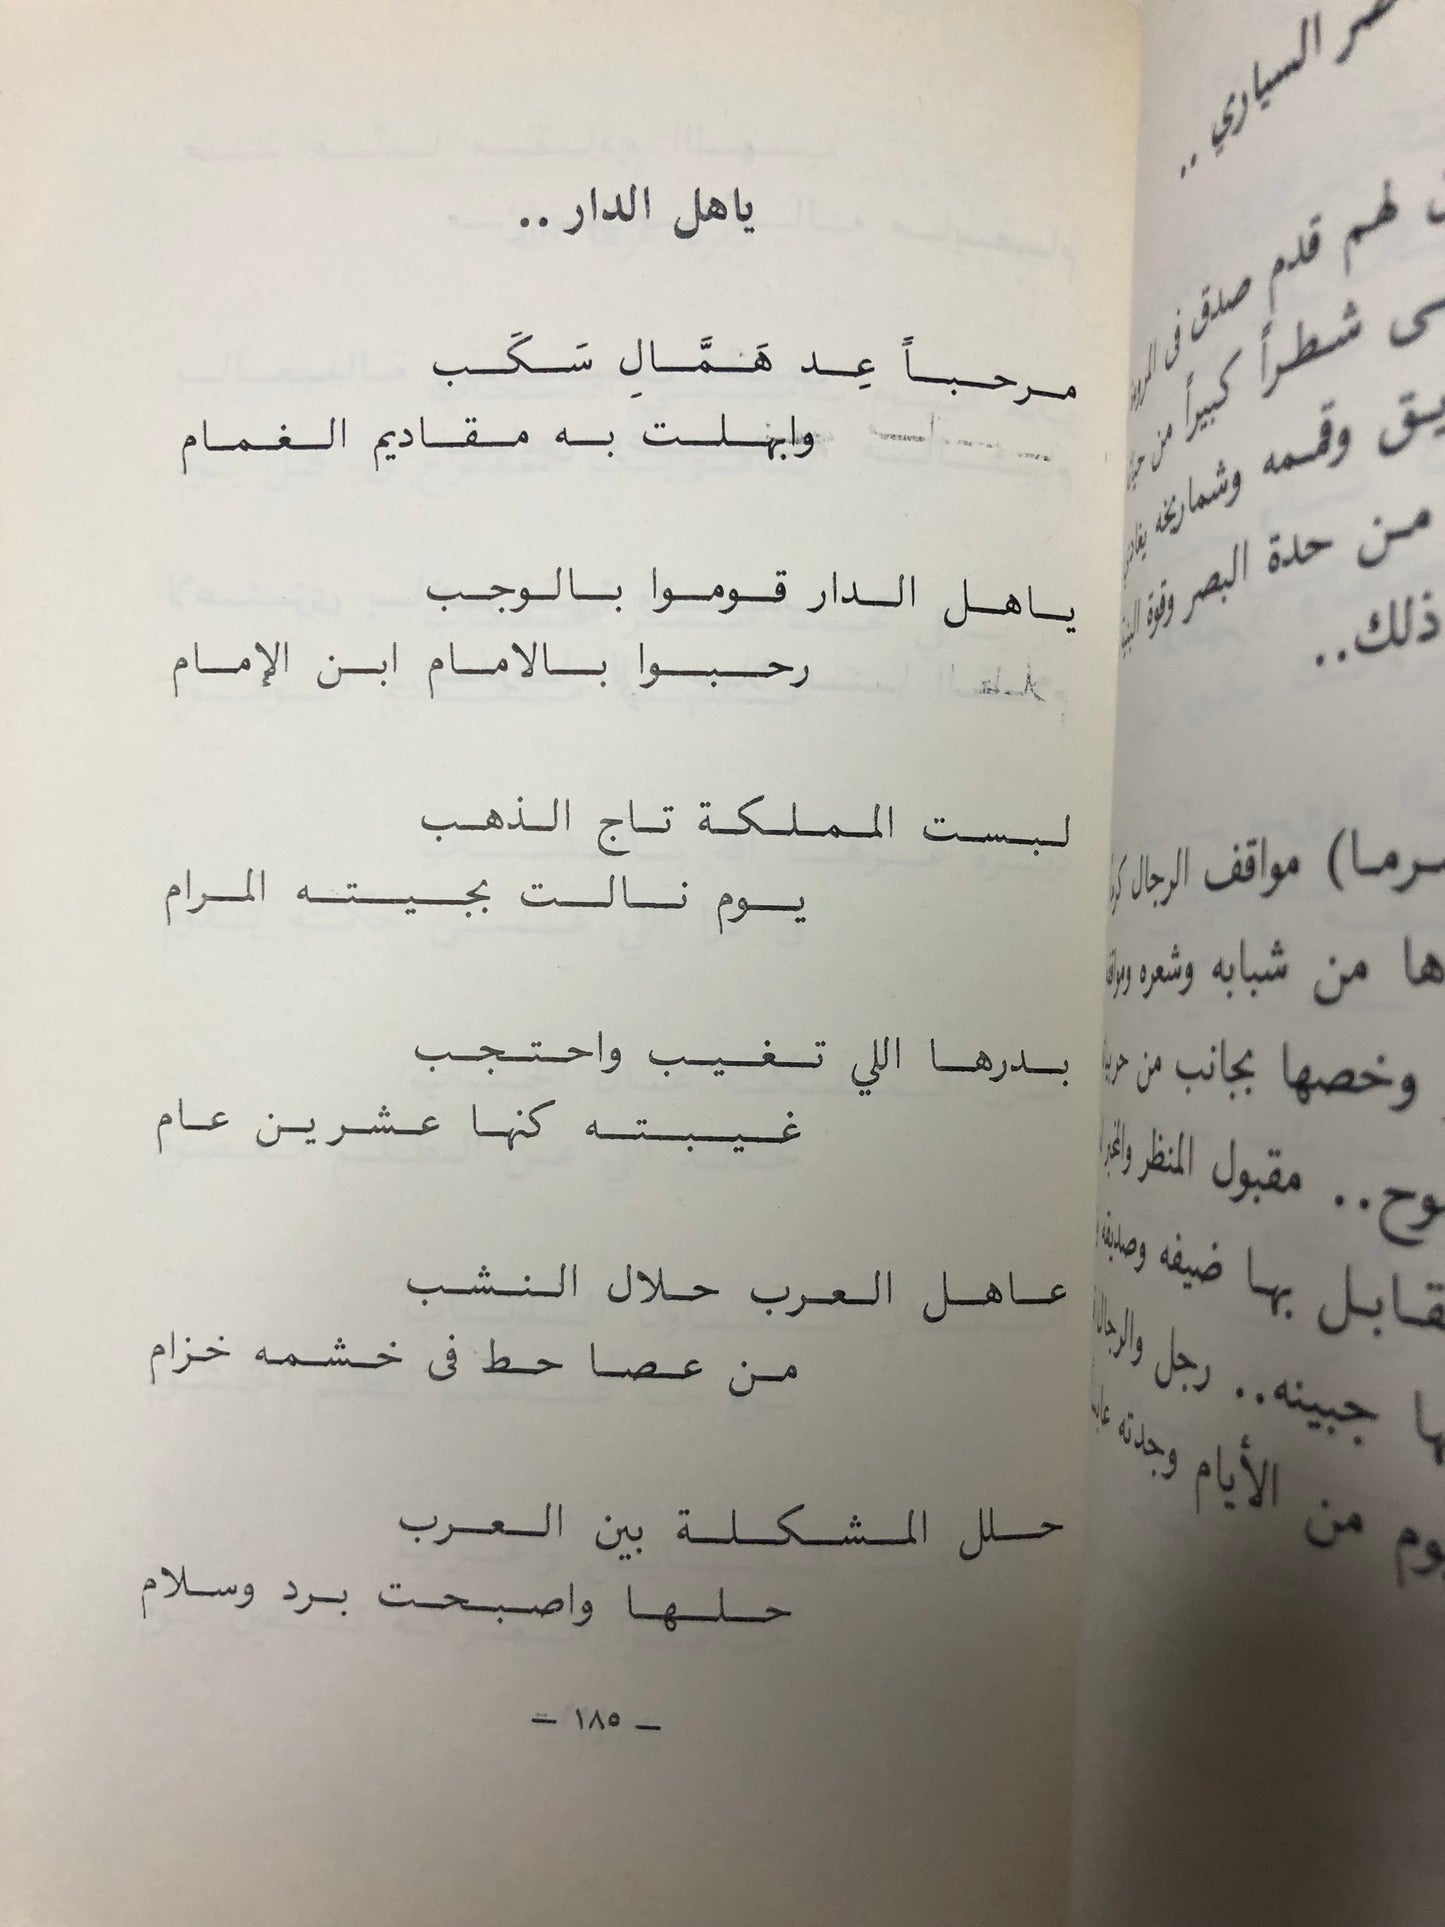 ياهل الدار ..
مرحباً عِد هَمَّالِ سَكَب
وابهلت به مقاديم الغمام
ياهل الدار قوموا بالوجب
رحبوا بالامام ابن الإمام
لبست المملكة تاج الذهب
يوم نالت بجيته المرام
بدرها اللي تغيب واحتجب
غيبته كنها عشرين عام
عاهل العرب حلال النشب
من عصا حط فى خشمه خزام
حلل المشكلة بين العرب
حلها واصبحت برد وسلام
— ١٨٥ —
السياري ..
لهم قدم صدق فى
شطراً كبيراً من
وقممه وشماريخه
من حدة البصر وقوة
ذلك..
مواقف الرجال
من شبابه وشعره
وخصها بجانب من
مقبول المنظر
بها ضيفه وصديقه
جبينه.. رجل والرجال
من الأيام وجدته